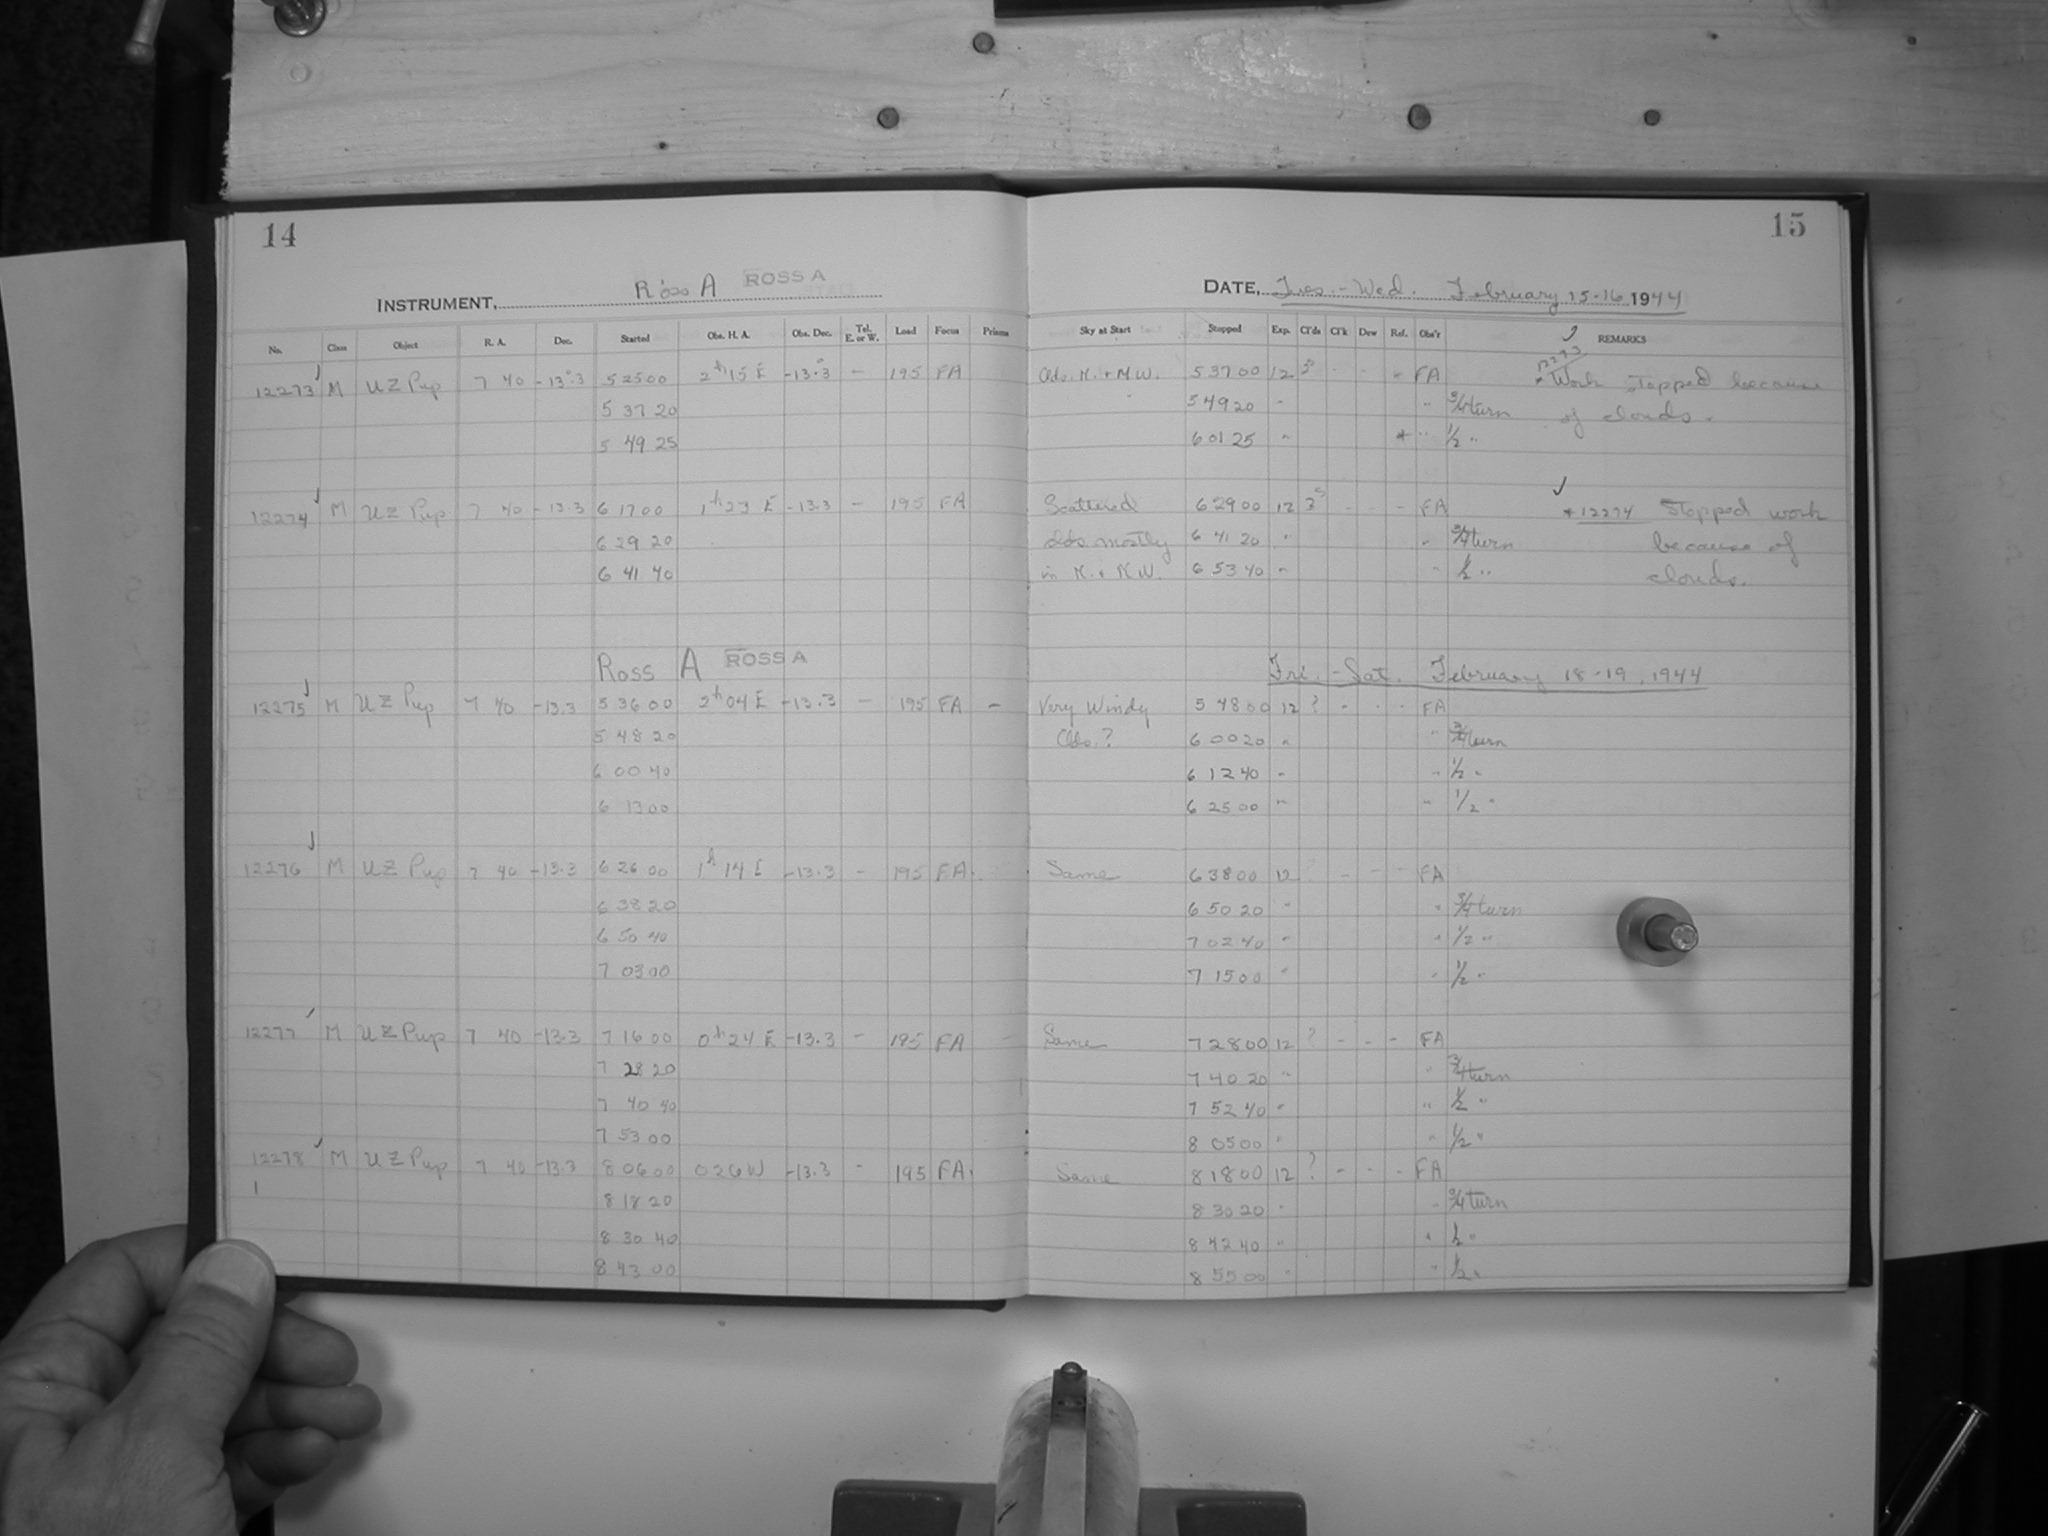 14
15
INSTRUMENT, Ross A ROSS A
DATE, Tues.-Wed. February 15-16 1944
No. Class Object R. A. Dec. Started Obs. H. A. Obs. Dec. Tel. E. or W. Load Focus Prisms Sky at Start Stopped Exp. Cl'ds Cl'k Dew Ref. Obs'r REMARKS
12273 M UZ Pup 7 40 -13.3 5 25 00 2h 15 E -13.3 - 195 FA Clds. N. + N.W. 5 37 00 12 - - - FA 12273 * Work stopped because
5 37 20 5 49 20 " " 3/4 turn of clouds.
5 49 25 6 01 25 " * " 1/2 "
12274 M UZ Pup 7 40 -13.3 6 17 00 1h 23 E -13.3 - 195 FA Scattered 6 29 00 12 - - - FA *12274 Stopped work
6 29 20 clds. mostly 6 41 20 " " 3/4 turn because of
6 41 40 in N. + N.W. 6 53 40 " " 1/2 " clouds.
Ross A ROSS A Fri. - Sat. February 18-19, 1944
12275 M UZ Pup 7 40 -13.3 5 36 00 2h 04 E -13.3 - 195 FA - Very Windy 5 48 00 12 ? - - - FA
5 48 20 Clds.? 6 00 20 " " 3/4 turn
6 00 40 6 12 40 " " 1/2 "
6 13 00 6 25 00 " " 1/2 "
12276 M UZ Pup 7 40 -13.3 6 26 00 1h 14 E -13.3 - 195 FA. Same 6 38 00 12 ? - - - FA
6 38 20 6 50 20 " " 3/4 turn
6 50 40 7 02 40 " " 1/2 "
7 03 00 7 15 00 " " 1/2 "
12277 M UZ Pup 7 40 -13.3 7 16 00 0h 24 E -13.3 - 195 FA - Same 7 28 00 12 ? - - - FA
7 28 20 7 40 20 " " 3/4 turn
7 40 40 7 52 40 " " 1/2 "
7 53 00 8 05 00 " " 1/2 "
12278 M UZ Pup 7 40 -13.3 8 06 00 0 26 W -13.3 - 195 FA. Same 8 18 00 12 ? - - - FA
8 18 20 8 30 20 " " 3/4 turn
8 30 40 8 42 40 " " 1/2 "
8 43 00 8 55 00 " " 1/2 "